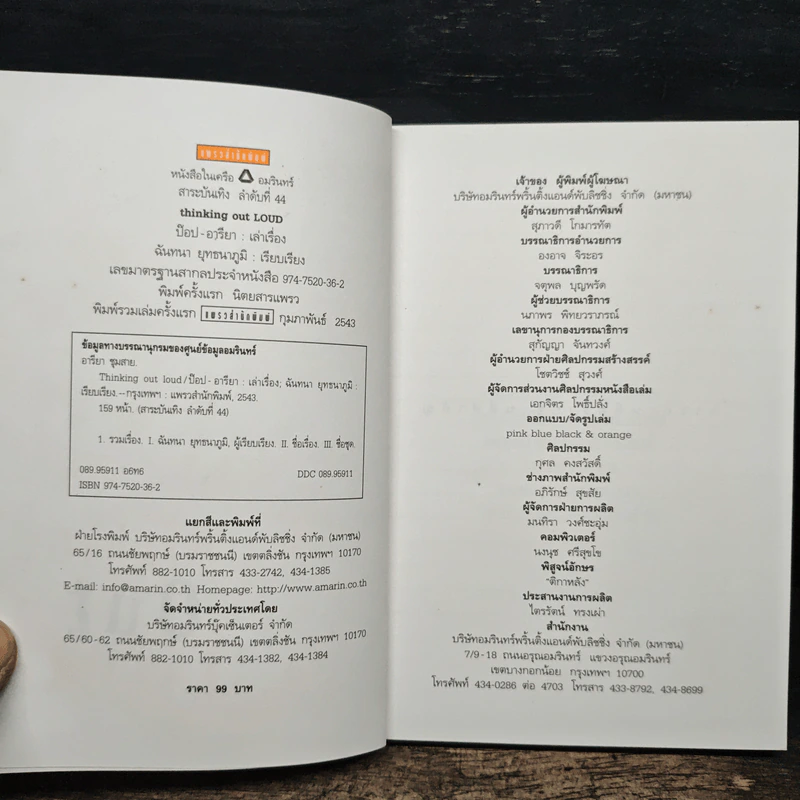 แพรวสำนักพิมพ์
หนังสือในเครือ อมรินทร์
สาระบันเทิง ลำดับที่ 44
thinking out LOUD
ป๊อป-อารียา : เล่าเรื่อง
ฉันทนา ยุทธนาภูมิ : เรียบเรียง
เลขมาตรฐานสากลประจำหนังสือ 974-7520-36-2
พิมพ์ครั้งแรก นิตยสารแพรว
พิมพ์รวมเล่มครั้งแรก แพรวสำนักพิมพ์ กุมภาพันธ์ 2543
ข้อมูลทางบรรณานุกรมของศูนย์ข้อมูลอมรินทร์
อารียา ชุมสาย.
Thinking out loud/ป๊อป-อารียา : เล่าเรื่อง; ฉันทนา ยุทธนาภูมิ :
เรียบเรียง.--กรุงเทพฯ : แพรวสำนักพิมพ์, 2543.
159 หน้า. (สาระบันเทิง ลำดับที่ 44)
1. รวมเรื่อง. I. ฉันทนา ยุทธนาภูมิ, ผู้เรียบเรียง. II. ชื่อเรื่อง. III. ชื่อชุด.
089.95911 อ6ท6 DDC 089.95911
ISBN 974-7520-36-2
แยกสีและพิมพ์ที่
ฝ่ายโรงพิมพ์ บริษัทอมรินทร์พริ้นติ้งแอนด์พับลิชชิ่ง จำกัด (มหาชน)
65/16 ถนนชัยพฤกษ์ (บรมราชชนนี) เขตตลิ่งชัน กรุงเทพฯ 10170
โทรศัพท์ 882-1010 โทรสาร 433-2742, 434-1385
E-mail: info@amarin.co.th Homepage: http://www.amarin.co.th
จัดจำหน่ายทั่วประเทศโดย
บริษัทอมรินทร์บุ๊คเซ็นเตอร์ จำกัด
65/60-62 ถนนชัยพฤกษ์ (บรมราชชนนี) เขตตลิ่งชัน กรุงเทพฯ 10170
โทรศัพท์ 882-1010 โทรสาร 434-1382, 434-1384
ราคา 99 บาท
เจ้าของ ผู้พิมพ์ผู้โฆษณา
บริษัทอมรินทร์พริ้นติ้งแอนด์พับลิชชิ่ง จำกัด (มหาชน)
ผู้อำนวยการสำนักพิมพ์
สุภาวดี โกมารทัต
บรรณาธิการอำนวยการ
องอาจ จิระอร
บรรณาธิการ
จตุพล บุญพรัด
ผู้ช่วยบรรณาธิการ
นภาพร พิทยวราภรณ์
เลขานุการกองบรรณาธิการ
สุกัญญา จันทวงศ์
ผู้อำนวยการฝ่ายศิลปกรรมสร้างสรรค์
โชตวิชช์ สุวงศ์
ผู้จัดการส่วนงานศิลปกรรมหนังสือเล่ม
เอกจิตร โพธิ์ปลั่ง
ออกแบบ/จัดรูปเล่ม
pink blue black & orange
ศิลปกรรม
กุศล คงสวัสดิ์
ช่างภาพสำนักพิมพ์
อภิรักษ์ สุขสัย
ผู้จัดการฝ่ายการผลิต
มนทิรา วงศ์ชะอุ่ม
คอมพิวเตอร์
นงนุช ศรีสุขโข
พิสูจน์อักษร
"ติกาหลัง"
ประสานงานการผลิต
ไตรรัตน์ ทรงเผ่า
สำนักงาน
บริษัทอมรินทร์พริ้นติ้งแอนด์พับลิชชิ่ง จำกัด (มหาชน)
7/9-18 ถนนอรุณอมรินทร์ แขวงอรุณอมรินทร์
เขตบางกอกน้อย กรุงเทพฯ 10700
โทรศัพท์ 434-0286 ต่อ 4703 โทรสาร 433-8792, 434-8699